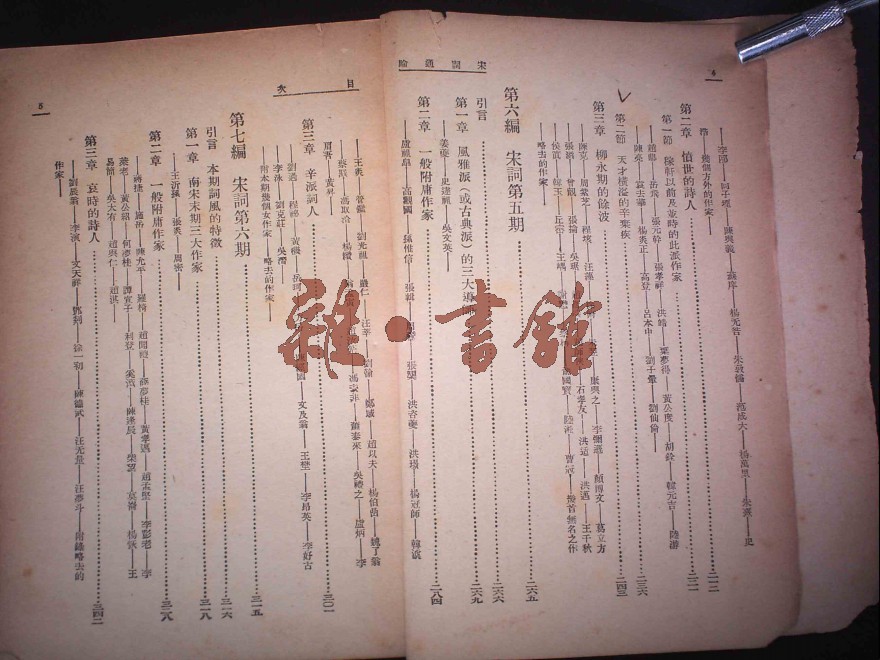 宋詞通論
4
李邴——向子諲——陳與義——蘇庠——楊无咎——朱敦儒——范成大——楊萬里——朱熹——史
浩——幾個方外的作家——……二一二
第二章 憤世的詩人……二二一
第一節 稼軒以前及並時的此派作家
趙鼎——岳飛——張元幹——張孝祥——洪皓——葉夢得——黃公度——胡銓——韓元吉——陸游
陳亮——袁去華——楊炎正——高登——呂本中——劉子翬——劉仙倫——……二三六
第二節 天才橫溢的辛棄疾……二四三
第三章 柳永期的餘波
陳克——周紫芝——程垓——汪藻——康與之——李彌遜——顏博文——葛立方
張鎡——曾覿——張掄——吳琚——石孝友——洪适——洪邁——王千秋
侯寘——韓玉——丘崈——王嵎——陸淞——曾冠——幾首無名之作
略去的作家——
第六編 宋詞第五期……二六五
引言……二六六
第一章 風雅派(或古典派)的三大導師……二六九
姜夔——史達祖——吳文英——
第二章 一般附庸作家……二八四
盧祖皋——高觀國——孫惟信——張輯——張榘——洪咨夔——洪瑹——楊冠師——韓淲
目次
5
王炎——管鑑——劉光祖——嚴仁——汪莘——劉翰——鄭域——趙以夫——楊伯喦——魏了翁
蔡戡——馮取洽——楊纘——馮偉壽——蕭泰來——吳禮之——盧炳——李
肩吾——黃昇——
第三章 辛派詞人……三〇一
劉過——程珌——黃機——岳珂——文及翁——王埜——李昂英——李好古
李泳——劉克莊——吳潛
附本期幾個女作家——略去的作家——
第七編 宋詞第六期……三一五
引言 本期詞風的特徵……三一六
第一章 南宋末期三大作家……三一八
王沂孫——張炎——周密——
第二章 一般附庸作家……三二八
蔣捷——施岳——陳允平——羅椅——趙聞禮——薛夢桂——黃孝邁——趙孟堅——李彭老——李
萊老——黃公紹——何夢桂——譚宣子——利登——奚㵄——陳逢辰——柴望——莫崙——楊纘——王
易簡——吳大有——趙與仁——趙淇——
第三章 哀時的詩人……三四二
劉辰翁——李演——文天祥——鄧剡——徐一初——陳德武——汪元量——汪夢斗——附錄略去的
作家——